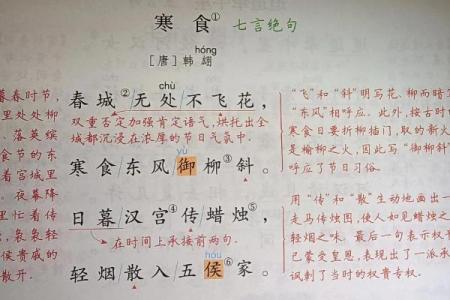 寒食① 七言绝句
hóng
[唐] 韩翃
chù
春城②/无处/不飞花,
双重否定加强肯定语气,烘托出全
城都沉浸在浓厚的节日气氛中.
yù
寒食/东风/御柳③斜。
日暮/汉宫/传蜡烛⑤,
在时间上承接前两句.
hóu
轻烟/散入/五侯⑥家。
暮春时节,
里处处柳
落英缤
食节的东
着宫城里
夜幕降
里忙着传
袅袅轻
侯贵戚的
散开.
"飞"和"斜"明写花、柳而暗写
"东风"相呼应.此外,按古时
寒食日要折柳插门,取的新火
是榆柳之火,因此写"御柳斜"
呼应了节日习俗.
用"传"和"散"生动地画出一
走马传烛图,使人如见蜡烛之
轻烟之味.最后一句表示权
已蒙受皇恩,表现出了一派承
讽刺了当时的权贵专权.